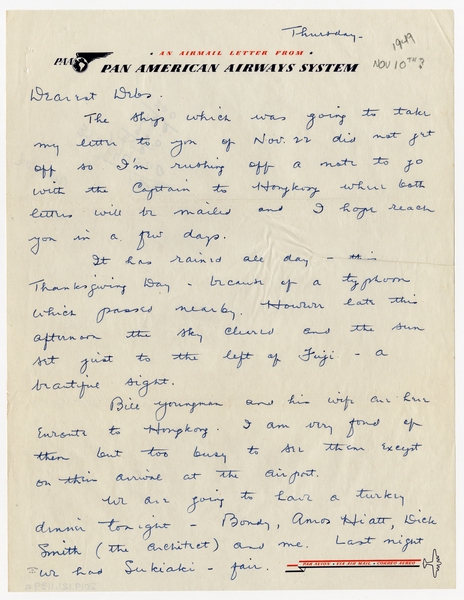 Thursday-
1949
NOV 10TH ?
• AN AIRMAIL LETTER FROM •
PAA
PAN AMERICAN AIRWAYS SYSTEM
Dearest Debs.
The ship which was going to take
my letter to you of Nov. 22 did not get
off so I'm rushing off a note to go
with the Captain to Hongkong where both
letters will be mailed and I hope reach
you in a few days.
It has rained all day - this
Thanksgiving Day - because of a typhoon
which passed nearby. However late this
afternoon the sky cleared and the sun
set just to the left of Fuji - a
beautiful sight.
Bill Youngman and his wife are here
enroute to Hongkong. I am very fond of
them but too busy to see them except
on their arrival at the airport.
We are going to have a turkey
dinner tonight - Bondy, Amos Hiatt, Dick
Smith (the architect) and me. Last night
we had Sukiaki - fair.
PAR AVION • VIA AIR MAIL • CORREO AEREO